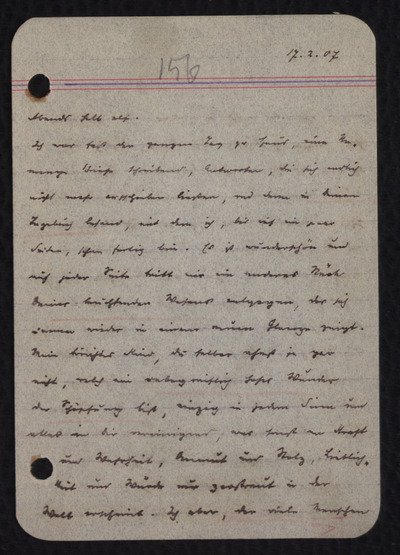 156
17.2.07
Abends halb elf.
Ich war fast den ganzen Tag zu Haus, eine Un-
menge Briefe schreibend, Antworten, die sich endlich
nicht mehr aufschieben ließen, und dann in Deinem
Tagebuch lesend, mit dem ich, bis auf ein paar
Seiten, schon fertig bin. Es ist wunderschön und
auf jeder Seite tritt mir ein anderes Stück
Deines leuchtenden Wesens entgegen, das sich
immer wieder in einem neuen Glanze zeigt.
Mein törichtes Kind, du selber ahnst ja gar
nicht, welch ein unbegreiflich hohes Wunder
der Schöpfung bist, einzig in jedem Sinn und
alles in dir vereinigend, was sonst an Kraft
und Wahrheit, Anmut und Stolz, Lieblich-
keit und Würde nur zerstreut in der
Welt erscheint. Ich aber, der viele Menschen